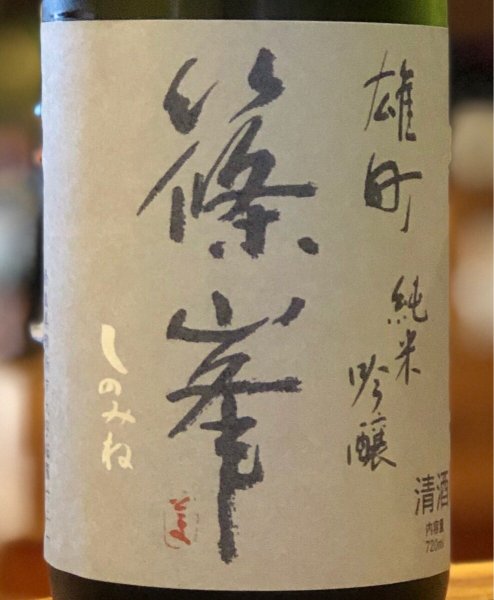 雄町
純米
吟醸
篠峯
しのみね
清酒
内容量
720ml